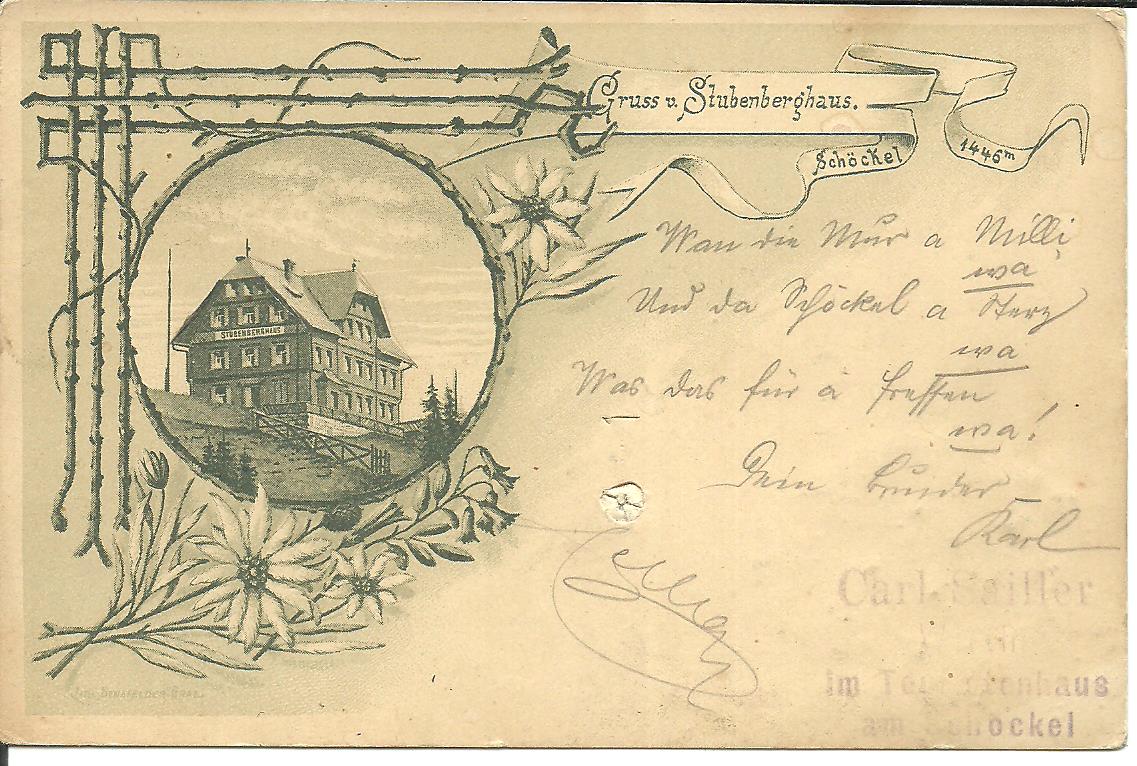 Gruss v. Stubenberghaus.
Schöckel
1446m
STUBENBERGHAUS
Wan die Mur a Milli
wa
Und da Schöckel a Sterz
wa
Was das für a fressen
wa!
Dein Bruder
Karl
Carl
im
am Schöckel